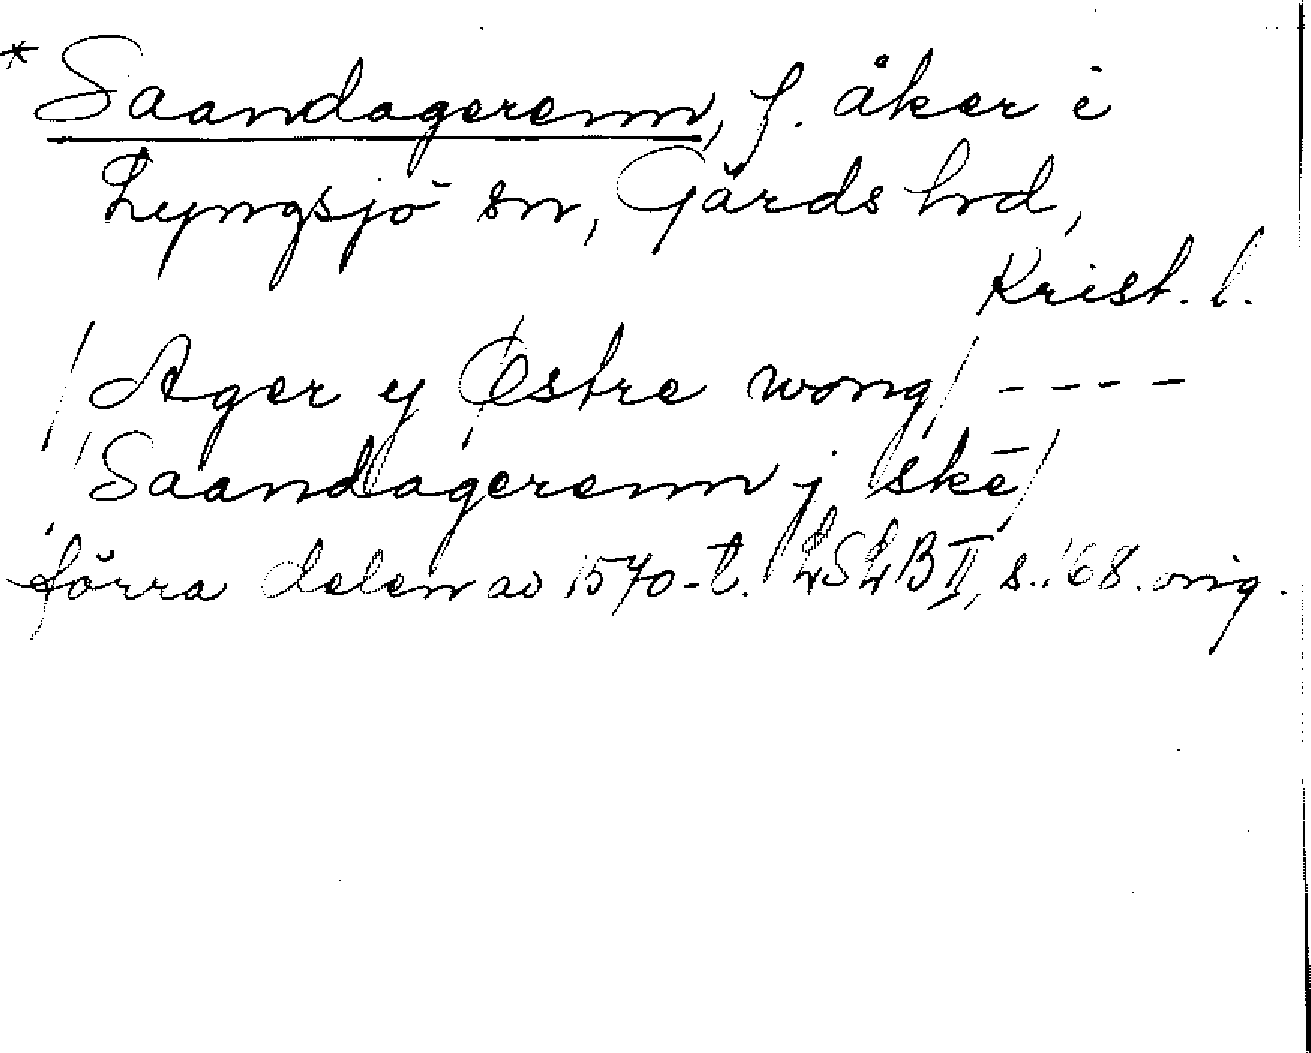 * Saandagerenn, f. åker i
Lyngsjö sn, Gärds hd,
Krist. l.
/Ager y Østre wong/ ----
Saandagerenn j skē/
förra delen av 1570-t. LSLB II, s. 168. orig.